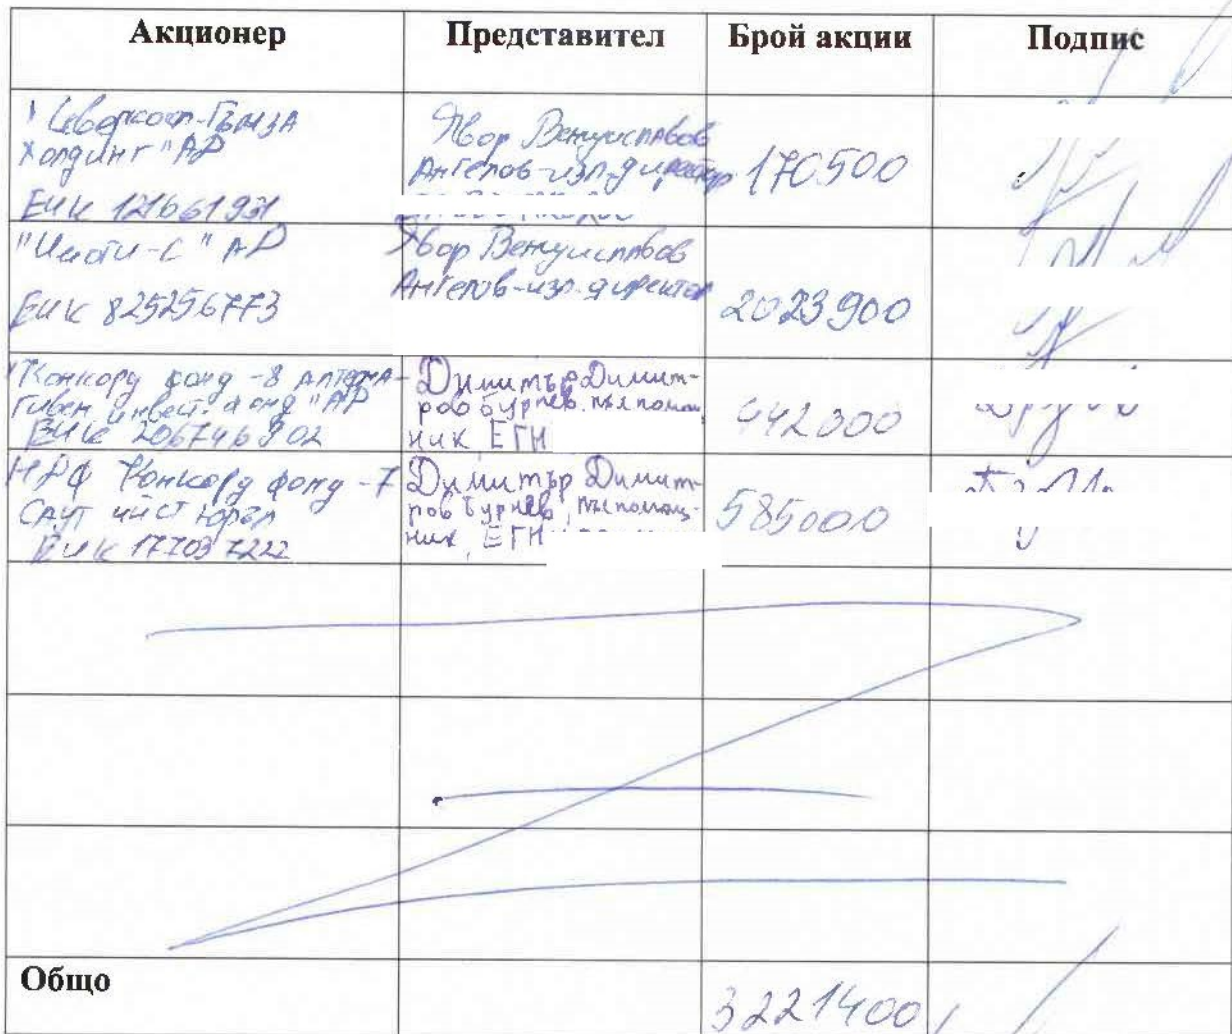 Акционер Представител Брой акции Подпис
"Северкооп-Гъмза
Холдинг" АД
ЕИК 121661931
Явор Венциславов
Ангелов-изп.директор
170500
"Инати-С" АД
ЕИК 825256773
Явор Венциславов
Ангелов-изп.директор
2023900
"Конкорд фонд-8 Алтерна-
тивен инвест. фонд" АД
ЕИК 206746902
Димитър Димит-
ров Бурнев, пълномощ
ник, ЕГН
442000
НДФ Конкорд фонд-7
Саут Ийст Юръп
ЕИК 177037222
Димитър Димит-
ров Бурнев, пълномощ-
ник, ЕГН
585000
Общо
3221400